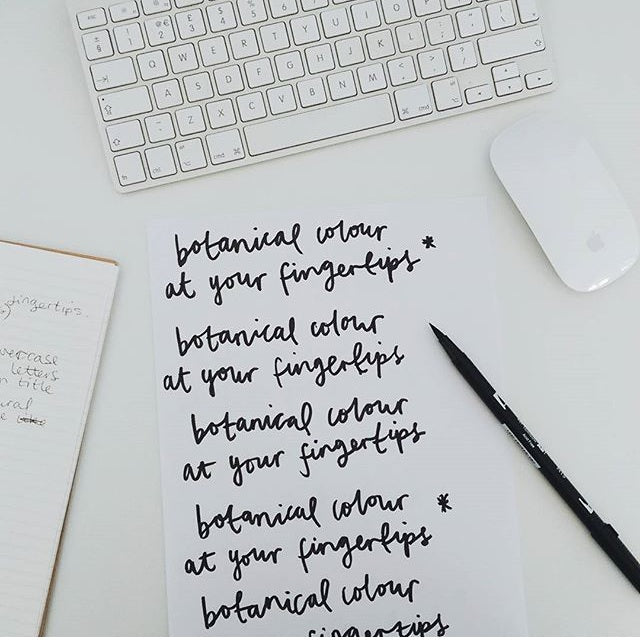 botanical colour
at your fingertips *
botanical colour
at your fingertips
botanical colour
at your fingertips
botanical colour *
at your fingertips
botanical colour
fingertips
fingertips.
letters
title
Q W E R T Y U I O P
A S D F G H J K L
Z X C V B N M
fn alt cmd cmd alt